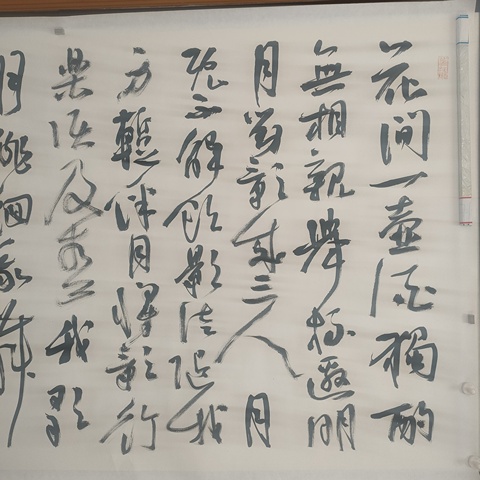 花間一壺酒獨酌
無相親舉杯邀明
月對影成三人月
既不解飲影徒隨我
身暫伴月將影行
樂須及春我歌
月徘徊我舞